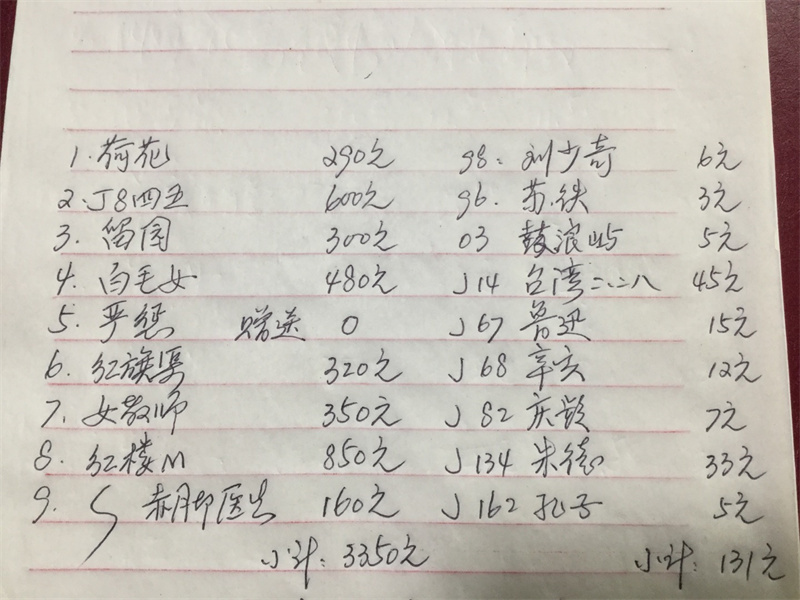 1. 荷花 290元 98. 刘少奇 6元
2. J8四五 600元 96. 苏铁 3元
3. 留园 300元 03 鼓浪屿 5元
4. 白毛女 480元 J14 台湾二二八 45元
5. 严惩 赠送 0 J67 鲁迅 15元
6. 红旗渠 320元 J68 辛亥 12元
7. 女教师 350元 J82 庆龄 7元
8. 红楼M 850元 J134 朱德 33元
9. 赤脚医生 160元 J162 孔子 5元
小计: 3350元 小计: 131元